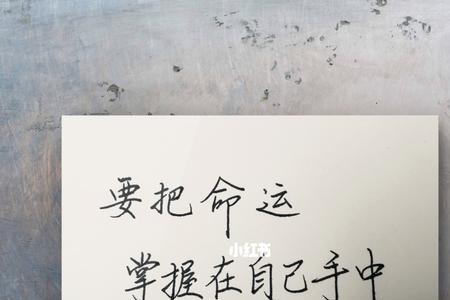 要把命运
小红书
掌握在自己手中